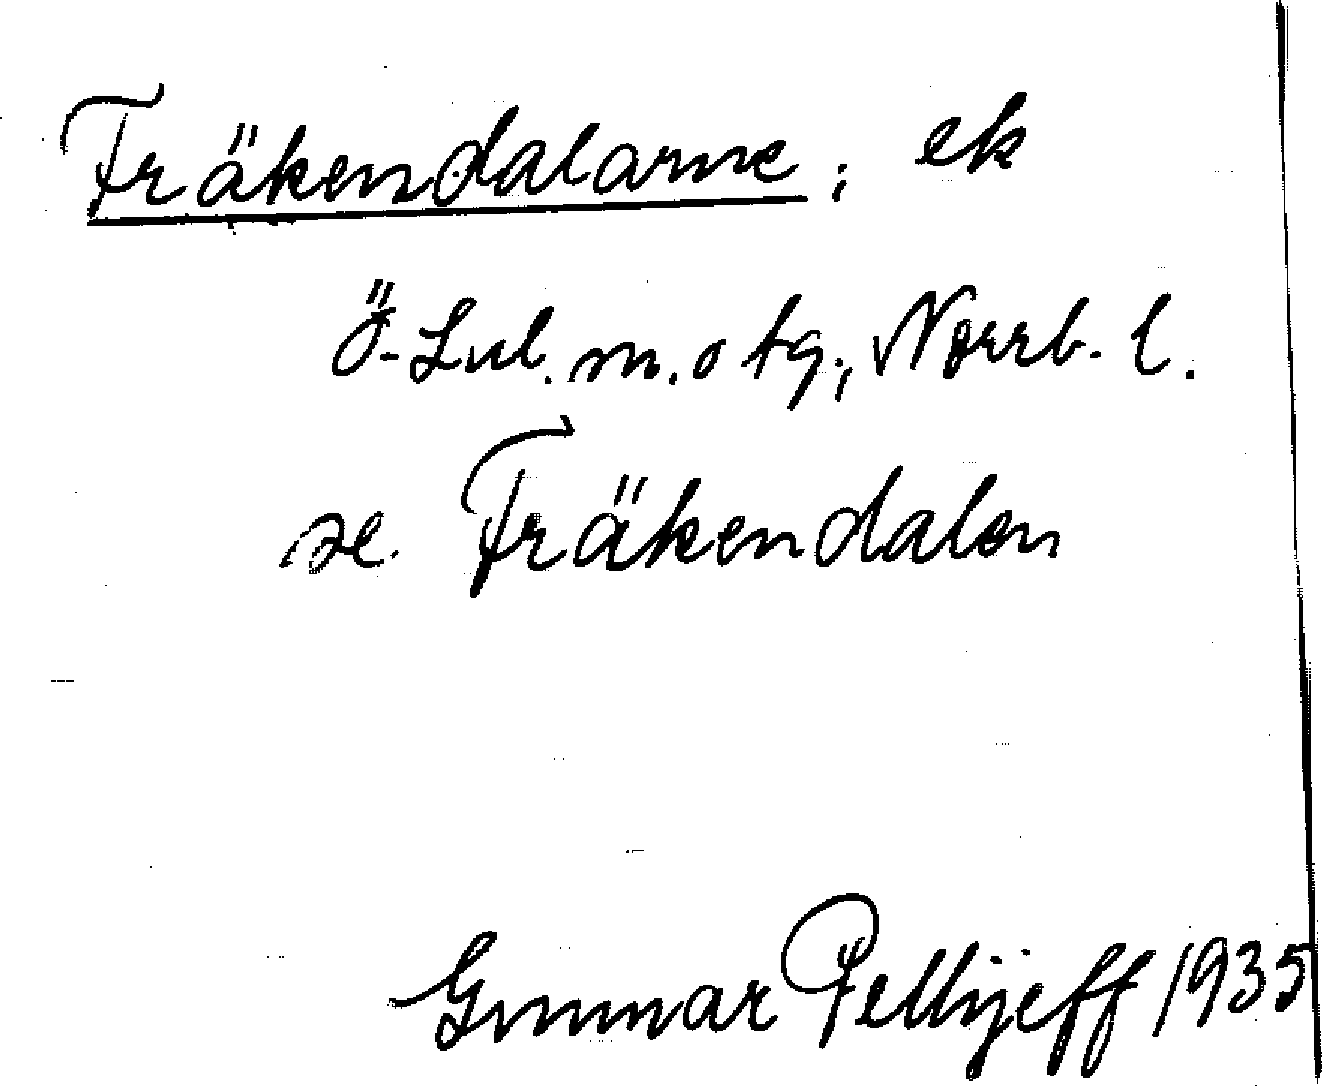 Fräkendalarne; ek
Ö-Lul. m. o tg; Norrb. l.
se Fräkendalen
Gunnar Pellijeff 1935